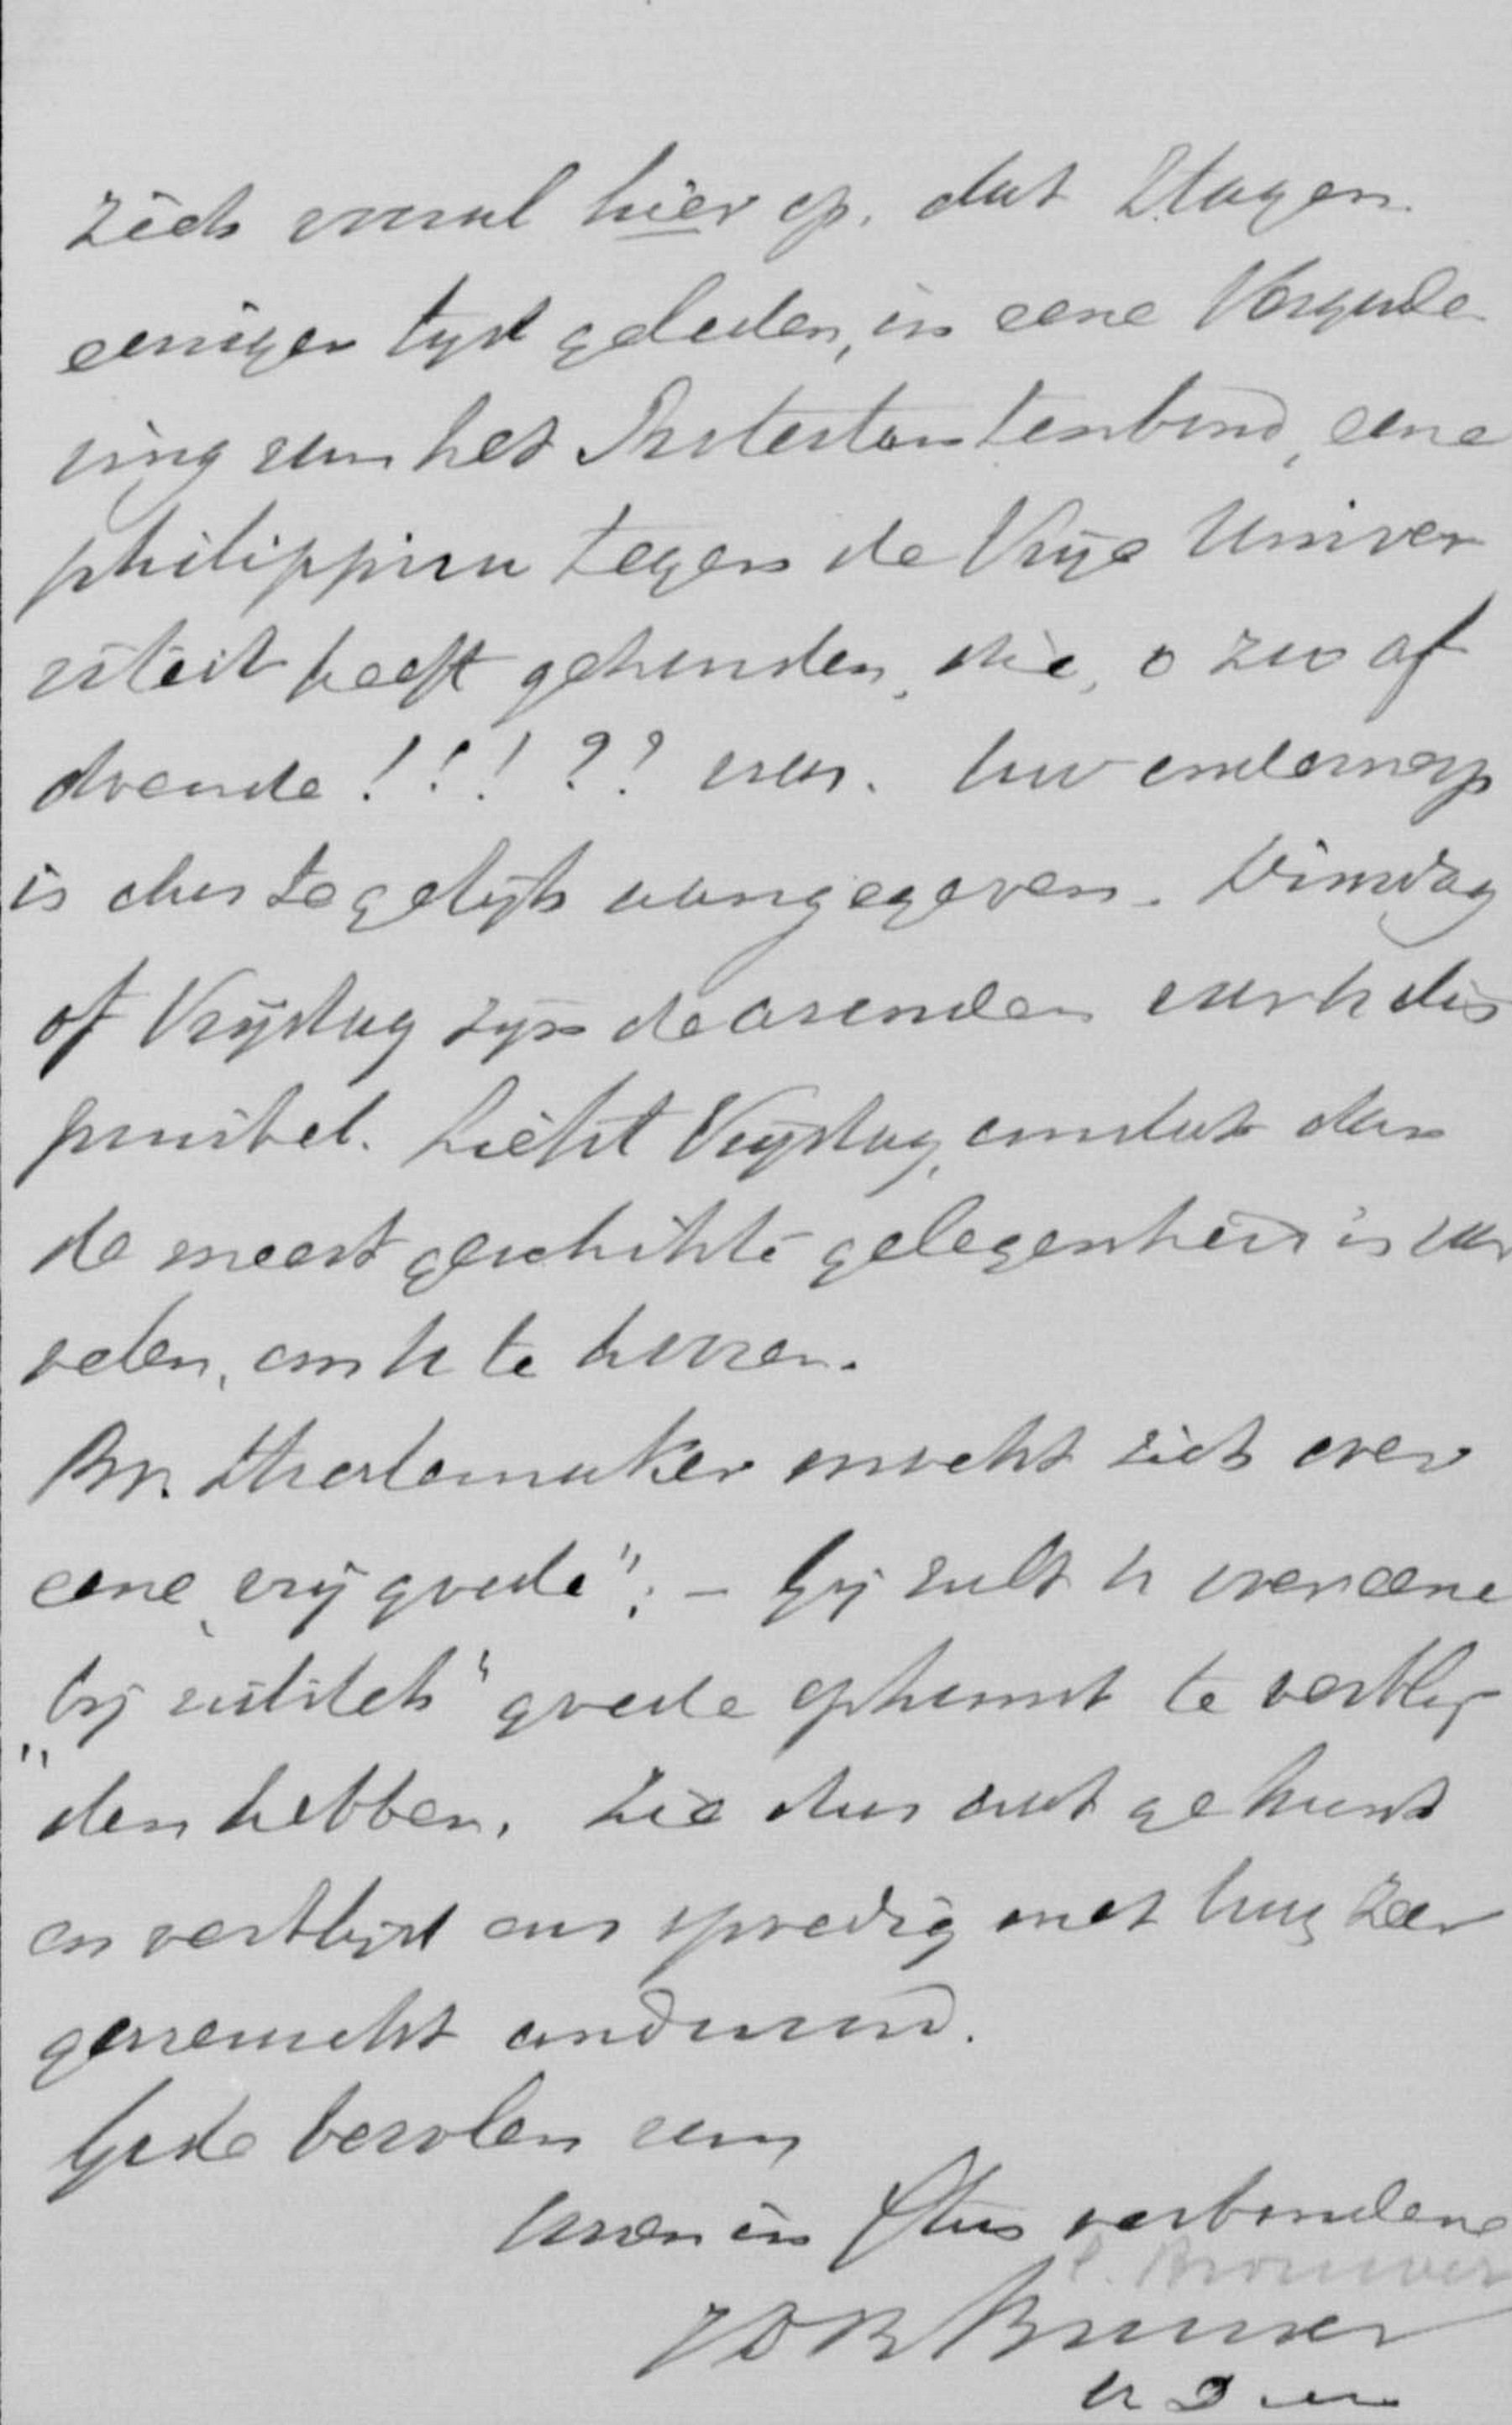 zich vooral hier op, dat
eenigen tyd geleden, in eene Vergade
ring van het Protestantenbond, eene
philippica tegen de Vrije Univer
siteit heeft gehouden, die, o zoo af
doende!!!?? was. Uw onderwerp
is dus tegelijk aangegeven. Dinsdag
of Vrijdag zyn de avonden voor U dis
ponibel. Liefst Vrydag, omdat dan
de meest geschikte gelegenheid is voor
velen, om U te hooren.
Br. mocht zich over
eene „vrij goede"; – Gij zult U over eene
„bij uitstek" goede opkomst te verbly
den hebben. Zie dus wat ge kunt
en verblijd ons spoedig met Uw zeer
gewenscht antwoord.
Gode bevolen van
Uwen in Chus verbondene
P. Brouwer
Brouwer